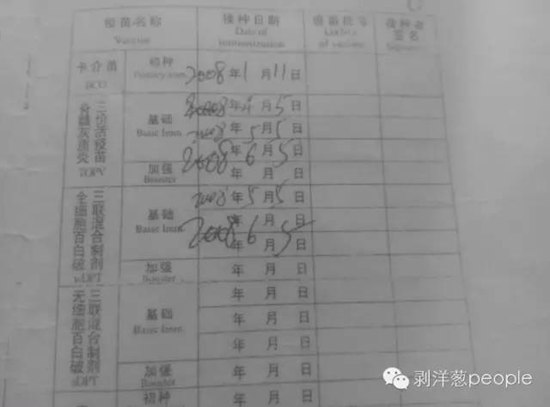 疫苗名称 接种日期 疫苗批号 接种者签名
Vaccine Date of immunization
卡介苗 初种 2008年1月11日
BCG
三价脊髓灰质炎活疫苗 基础 2008年4月5日
Basic Imm 2008年5月5日
2008年6月5日
TOPV 加强 年 月 日
Booster
全细胞百白破三联混合制剂 基础 2008年5月5日
Basic Imm 年 月 日
2008年6月5日
wDPT 加强 年 月 日
Booster
无细胞百白破三联混合制剂 基础 年 月 日
Basic Imm 年 月 日
年 月 日
aDPT 加强 年 月 日
Booster
初种 年 月 日
剥洋葱people